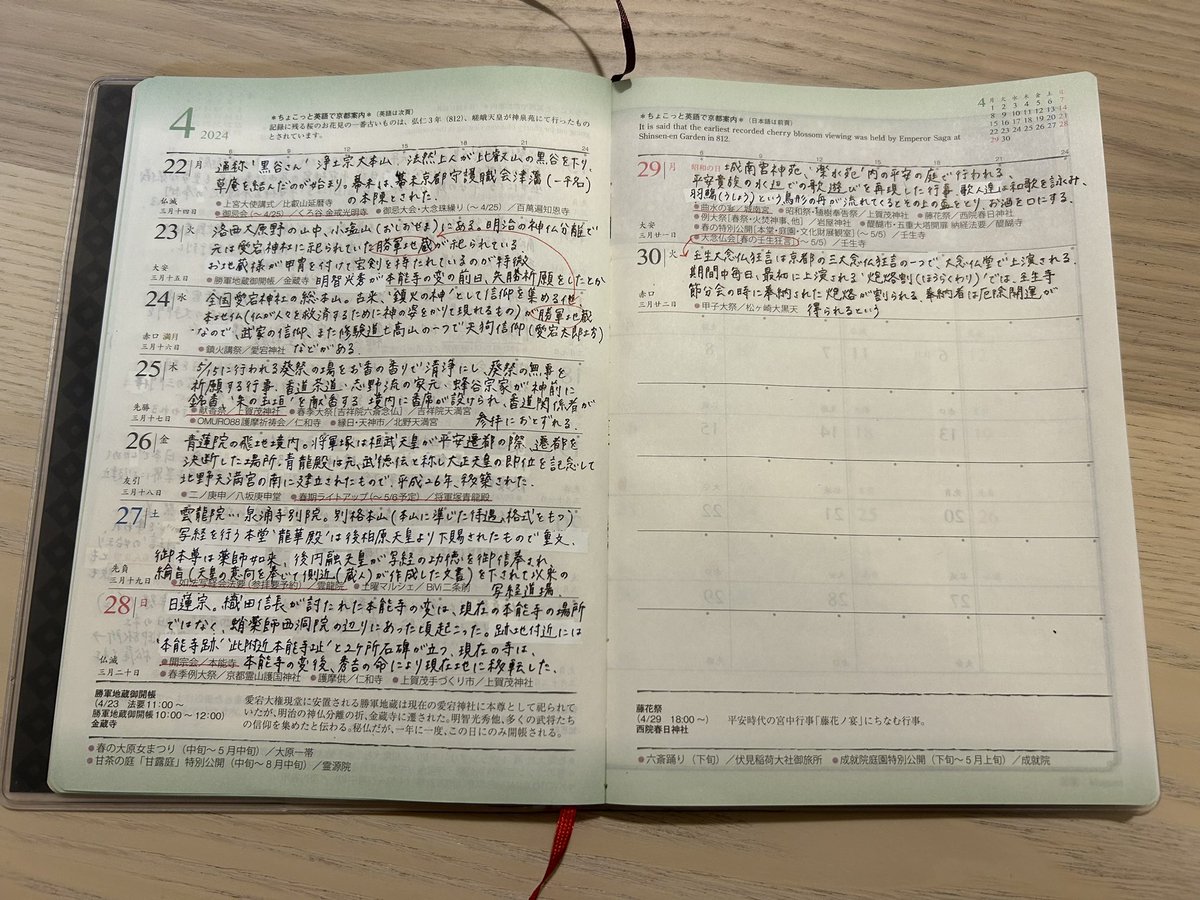 4 2024
*ちょこっと英語で京都案内*（英語は次頁）
記録に残る桜のお花見の一番古いものは、弘仁3年（812）、嵯峨天皇が神泉苑にて行ったもの
とされています。
6 9 12 15 18 21 24
22 月
仏滅
三月十四日
通称"黒谷さん" 浄土宗大本山、法然上人が比叡山の黒谷を下り、
草庵を結んだのが始まり。幕末は、幕末京都守護職会津藩（一千名）
の本陣とされた。
●上宮大使講式／比叡山延暦寺
●御忌会（〜4/25）／くろ谷 金戒光明寺 ●御忌大会・大念珠繰り（〜4/25）／百萬遍知恩寺
23 火
大安
三月十五日
洛西大原野の山中、小塩山（おしおせま）にある。明治の神仏分離で
元は愛宕神社に祀られていた勝軍地蔵が祀られている
お地蔵様が甲冑を付けて宝剣を持たれているのが特徴
●勝軍地蔵御開帳／金蔵寺 明智光秀が本能寺の変の前日、矢勝祈願をしたとか
24 水
赤口 満月
三月十六日
全国愛宕神社の総本山。古来、"鎮火の神"として信仰を集める他
本地仏（仏が人々を救済するために神の姿をかりて現れるもの）が勝軍地蔵
なので、武家の信仰、また修験道七高山の一つで天狗信仰（愛宕太郎坊）
●鎮火講祭／愛宕神社 などがある。
25 木
先勝
三月十七日
5/15に行われる葵祭の場をお香の香りで清浄にし、葵祭の無事を
祈願する行事。香道茶道・志野流の家元・蜂谷宗家が神前に
銘香"朱の玉垣"を献香する 境内に香席が設けられ、香道関係者が
●献香祭／上賀茂神社 ●春季大祭［吉祥院六斎念仏］／吉祥院天満宮
参拝におとずれる。
●OMURO88護摩祈祷会／仁和寺 ●縁日・天神市／北野天満宮
26 金
友引
三月十八日
青蓮院の飛地境内。将軍塚は桓武天皇が平安遷都の際、遷都を
決断した場所。青龍殿は元、武徳伝と称し大正天皇の即位を記念して
北野天満宮の南に建立されたもので、平成26年、移築された。
●二ノ庚申／八坂庚申堂 ●春期ライトアップ（〜5/6予定）／将軍塚青龍殿
27 土
先負
三月十九日
雲龍院…泉涌寺別院。別格本山（本山に準じた待遇、格式をもつ）
写経を行う本堂"龍華殿"は後柏原天皇より下賜されたもので重文、
御本尊は薬師如来、後円融天皇が写経の功徳を御信奉され、
綸旨（天皇の意向を奉じて側近（蔵人）が作成した文書）を下されて以来の
●如法写経会法要（参拝要予約）／雲龍院 ●土曜マルシェ／BiVi二条前
写経道場。
28 日
仏滅
三月二十日
日蓮宗。織田信長が討たれた本能寺の変は、現在の本能寺の場所
ではなく、蛸薬師西洞院の辺りにあった頃起こった。跡地付近には
"本能寺跡""此附近本能寺址"と2ヶ所石碑が立つ、現在の寺は、
●開宗会／本能寺 本能寺の変後、秀吉の命により現在地に移転した、
●春季例大祭／京都霊山護国神社 ●護摩供／仁和寺 ●上賀茂手づくり市／上賀茂神社
勝軍地蔵御開帳
（4/23 法要11:00〜
勝軍地蔵御開帳10:00〜12:00）
金蔵寺
愛宕大権現堂に安置される勝軍地蔵は現在の愛宕神社に本尊として祀られて
いたが、明治の神仏分離の折、金蔵寺に遷された。明智光秀他、多くの武将たち
の信仰を集めたと伝わる。秘仏だが、一年に一度、この日にのみ開帳される。
●春の大原女まつり（中旬〜5月中旬）／大原一帯
●甘茶の庭「甘露庭」特別公開（中旬〜8月中旬）／霊源院
*ちょこっと英語で京都案内*（日本語は前頁）
It is said that the earliest recorded cherry blossom viewing was held by Emperor Saga at
Shinsen-en Garden in 812.
4 月 火 水 木 金 土 日
1 2 3 4 5 6 7
8 9 10 11 12 13 14
15 16 17 18 19 20 21
22 23 24 25 26 27 28
29 30
6 9 12 15 18 21 24
29 月
大安
三月廿一日
昭和の日 城南宮神苑、"楽水苑"内の平安の庭で行われる、
平安貴族の水辺での歌遊びを再現した行事 歌人達は和歌を詠み、
羽觴（うしょう）という鳥形の舟が流れてくるとその上の盃をとり、お酒を口にする。
●曲水の宴／城南宮 ●昭和祭・植樹奉告祭／上賀茂神社 ●藤花祭／西院春日神社
●例大祭［春祭・火焚神事、他］／岩屋神社 ●醍醐市・五重大塔開扉 納経法要／醍醐寺
●春の特別公開［本堂・庭園・文化財展観室］（〜5/5）／壬生寺
●大念仏会［春の壬生狂言］（〜5/5）／壬生寺
30 火
赤口
三月廿二日
壬生大念仏狂言は京都の三大念仏狂言の一つで、大念仏堂で上演される。
期間中毎日、最初に上演される"炮烙割（ほうらくわり）"では、壬生寺
節分会の時に奉納された炮烙が割られる、奉納者は厄除開運が
●甲子大祭／松ヶ崎大黒天 得られるという
藤花祭
（4/29 18:00〜）
西院春日神社
平安時代の宮中行事「藤花ノ宴」にちなむ行事。
●六斎踊り（下旬）／伏見稲荷大社御旅所 ●成就院庭園特別公開（下旬〜5月上旬）／成就院